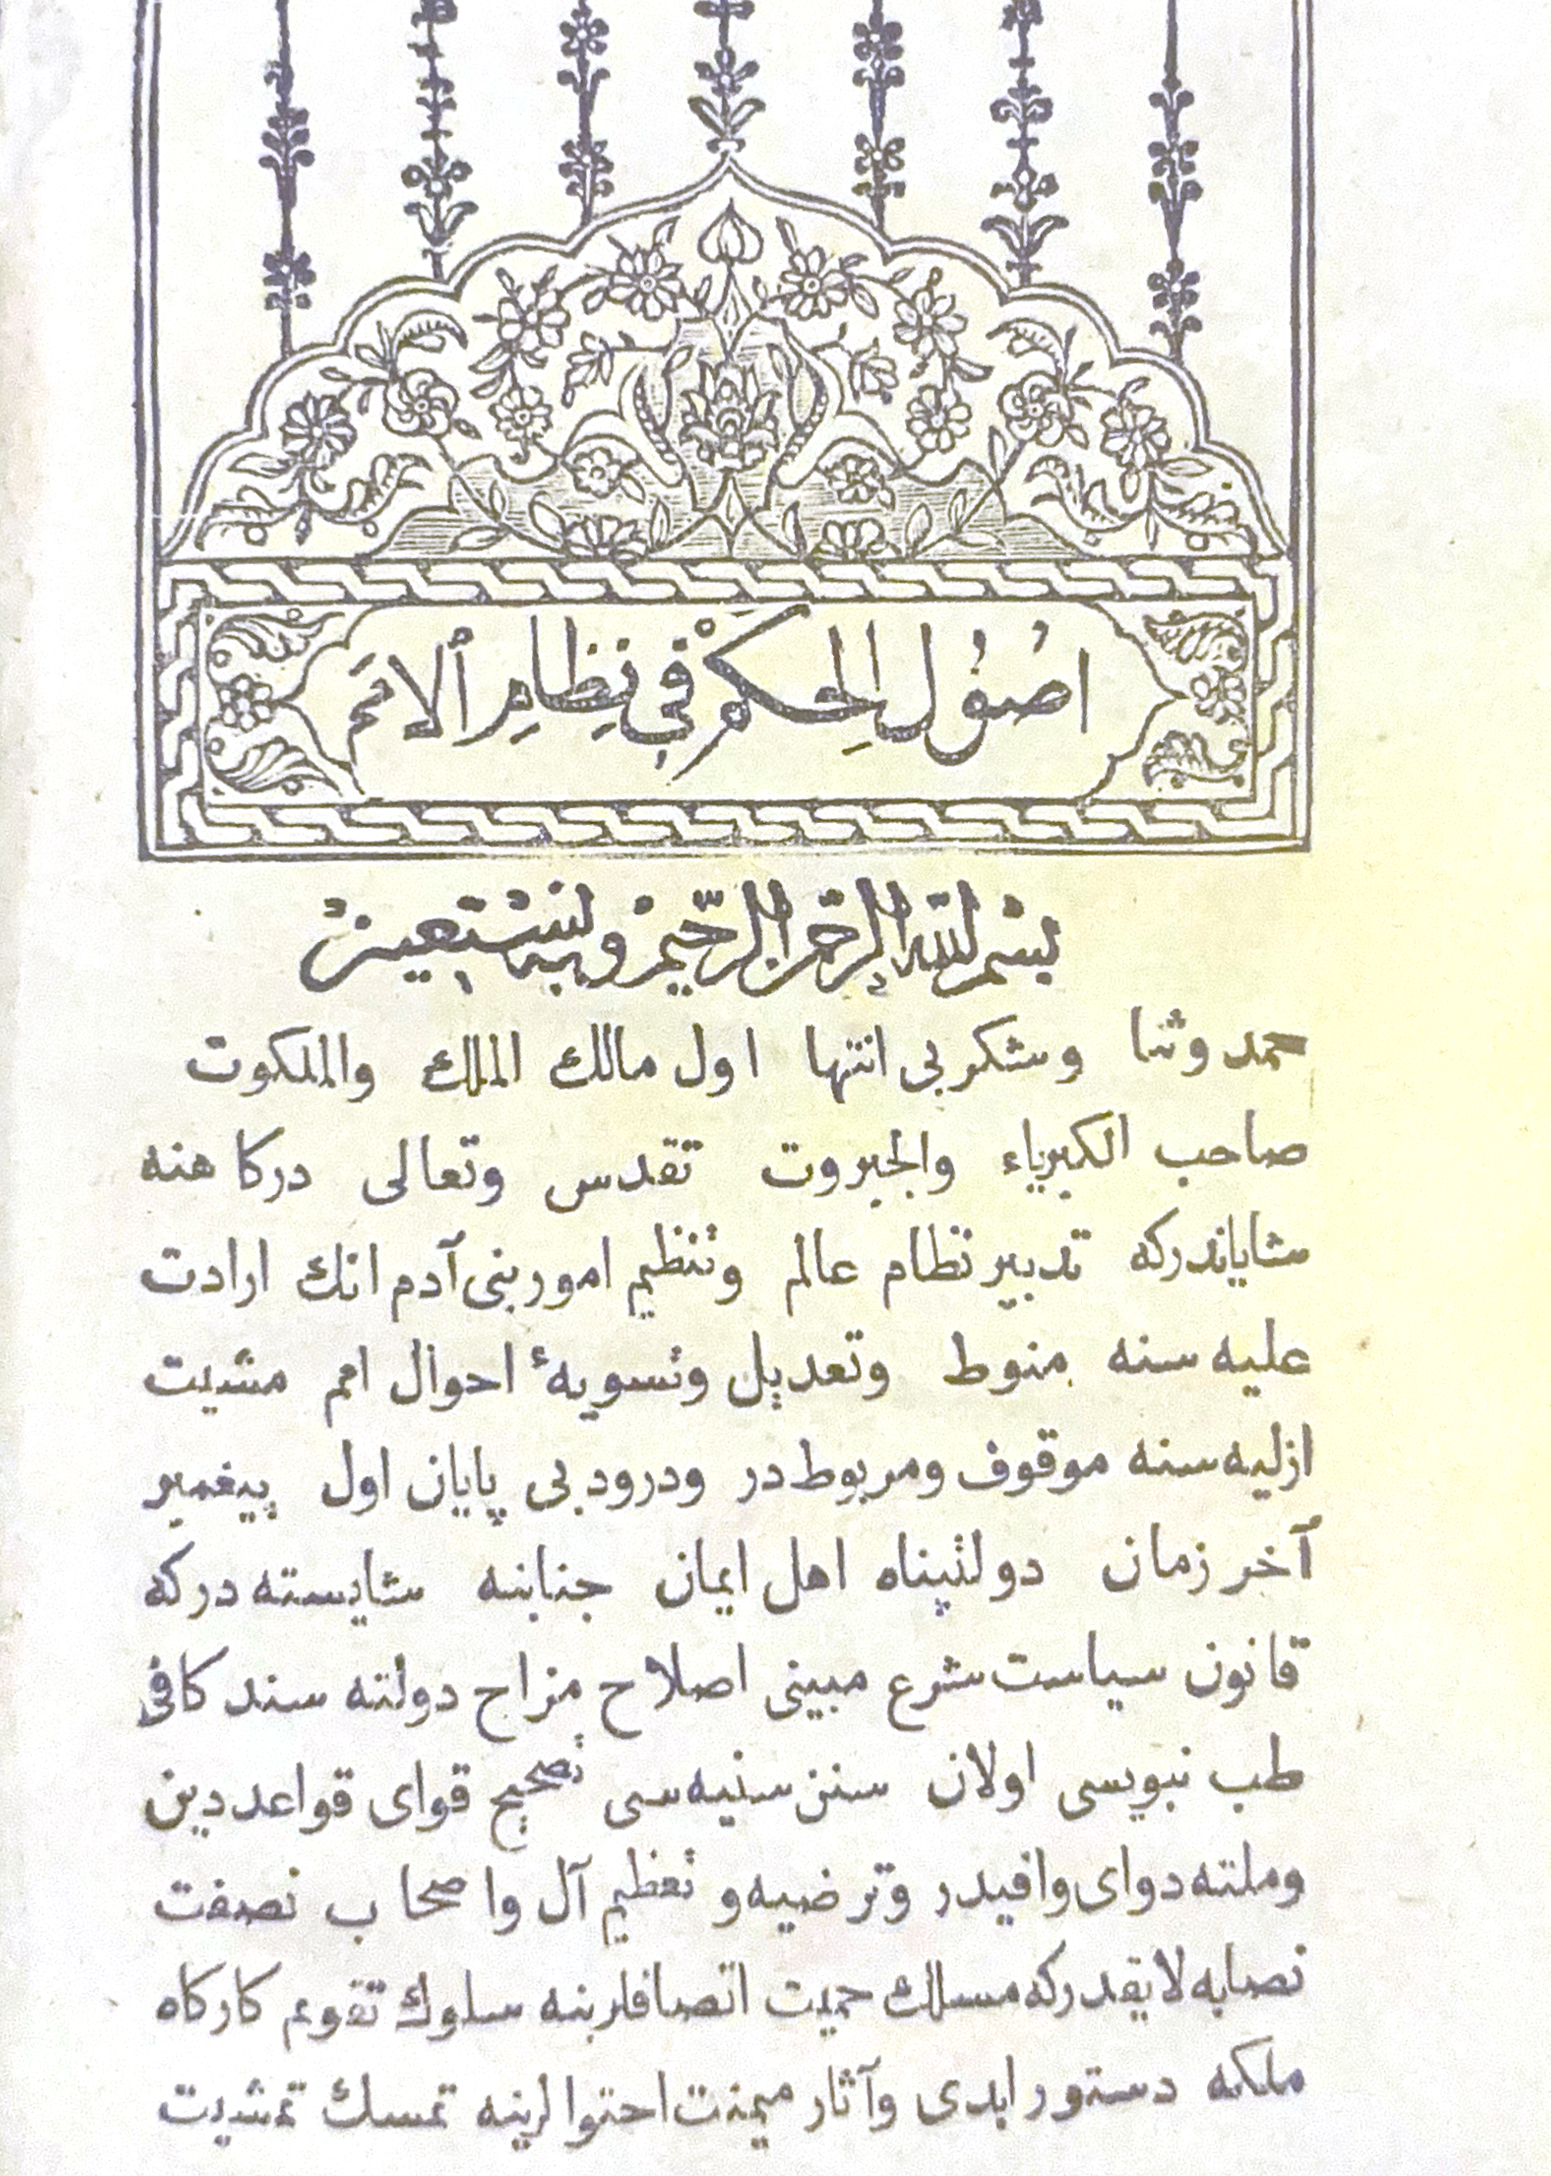 اصُوُل الحِكَمْ فِى نِظَامِ ٱلامَمَ
بسْم الله الرّحمن الرّحيمْ وبه نسْتعينْ
حمد وثنا وشكر بى انتها اول مالك الملك والملكوت
صاحب الكبرياء والجبروت تقدس وتعالى دركا هنه
شاياندركه تدبير نظام عالم وتنظيم امور بنى آدم انك ارادت
عليه سنه منوط وتعديل وتسويهٔ احوال امم مشيت
ازليه سنه موقوف ومربوط در ودرود بى پايان اول پيغمبر
آخر زمان دولتپناه اهل ايمان جنابنه شايسته در كه
قانون سياست شرع مبينى اصلاح مزاج دولته سند كافى
طب نبويسى اولان سنن سنيه سى تصحيح قواى قواعد دين
وملته دواى وافيدر وترضيه و تعظيم آل واصحاب نصفت
نصابه لايقدر كه مسلك حميت اتصافلرينه سلوك تقويم كاركاه
ملكه دستور ابدى وآثار ميمنت احتوالرينه تمسك تمشيت